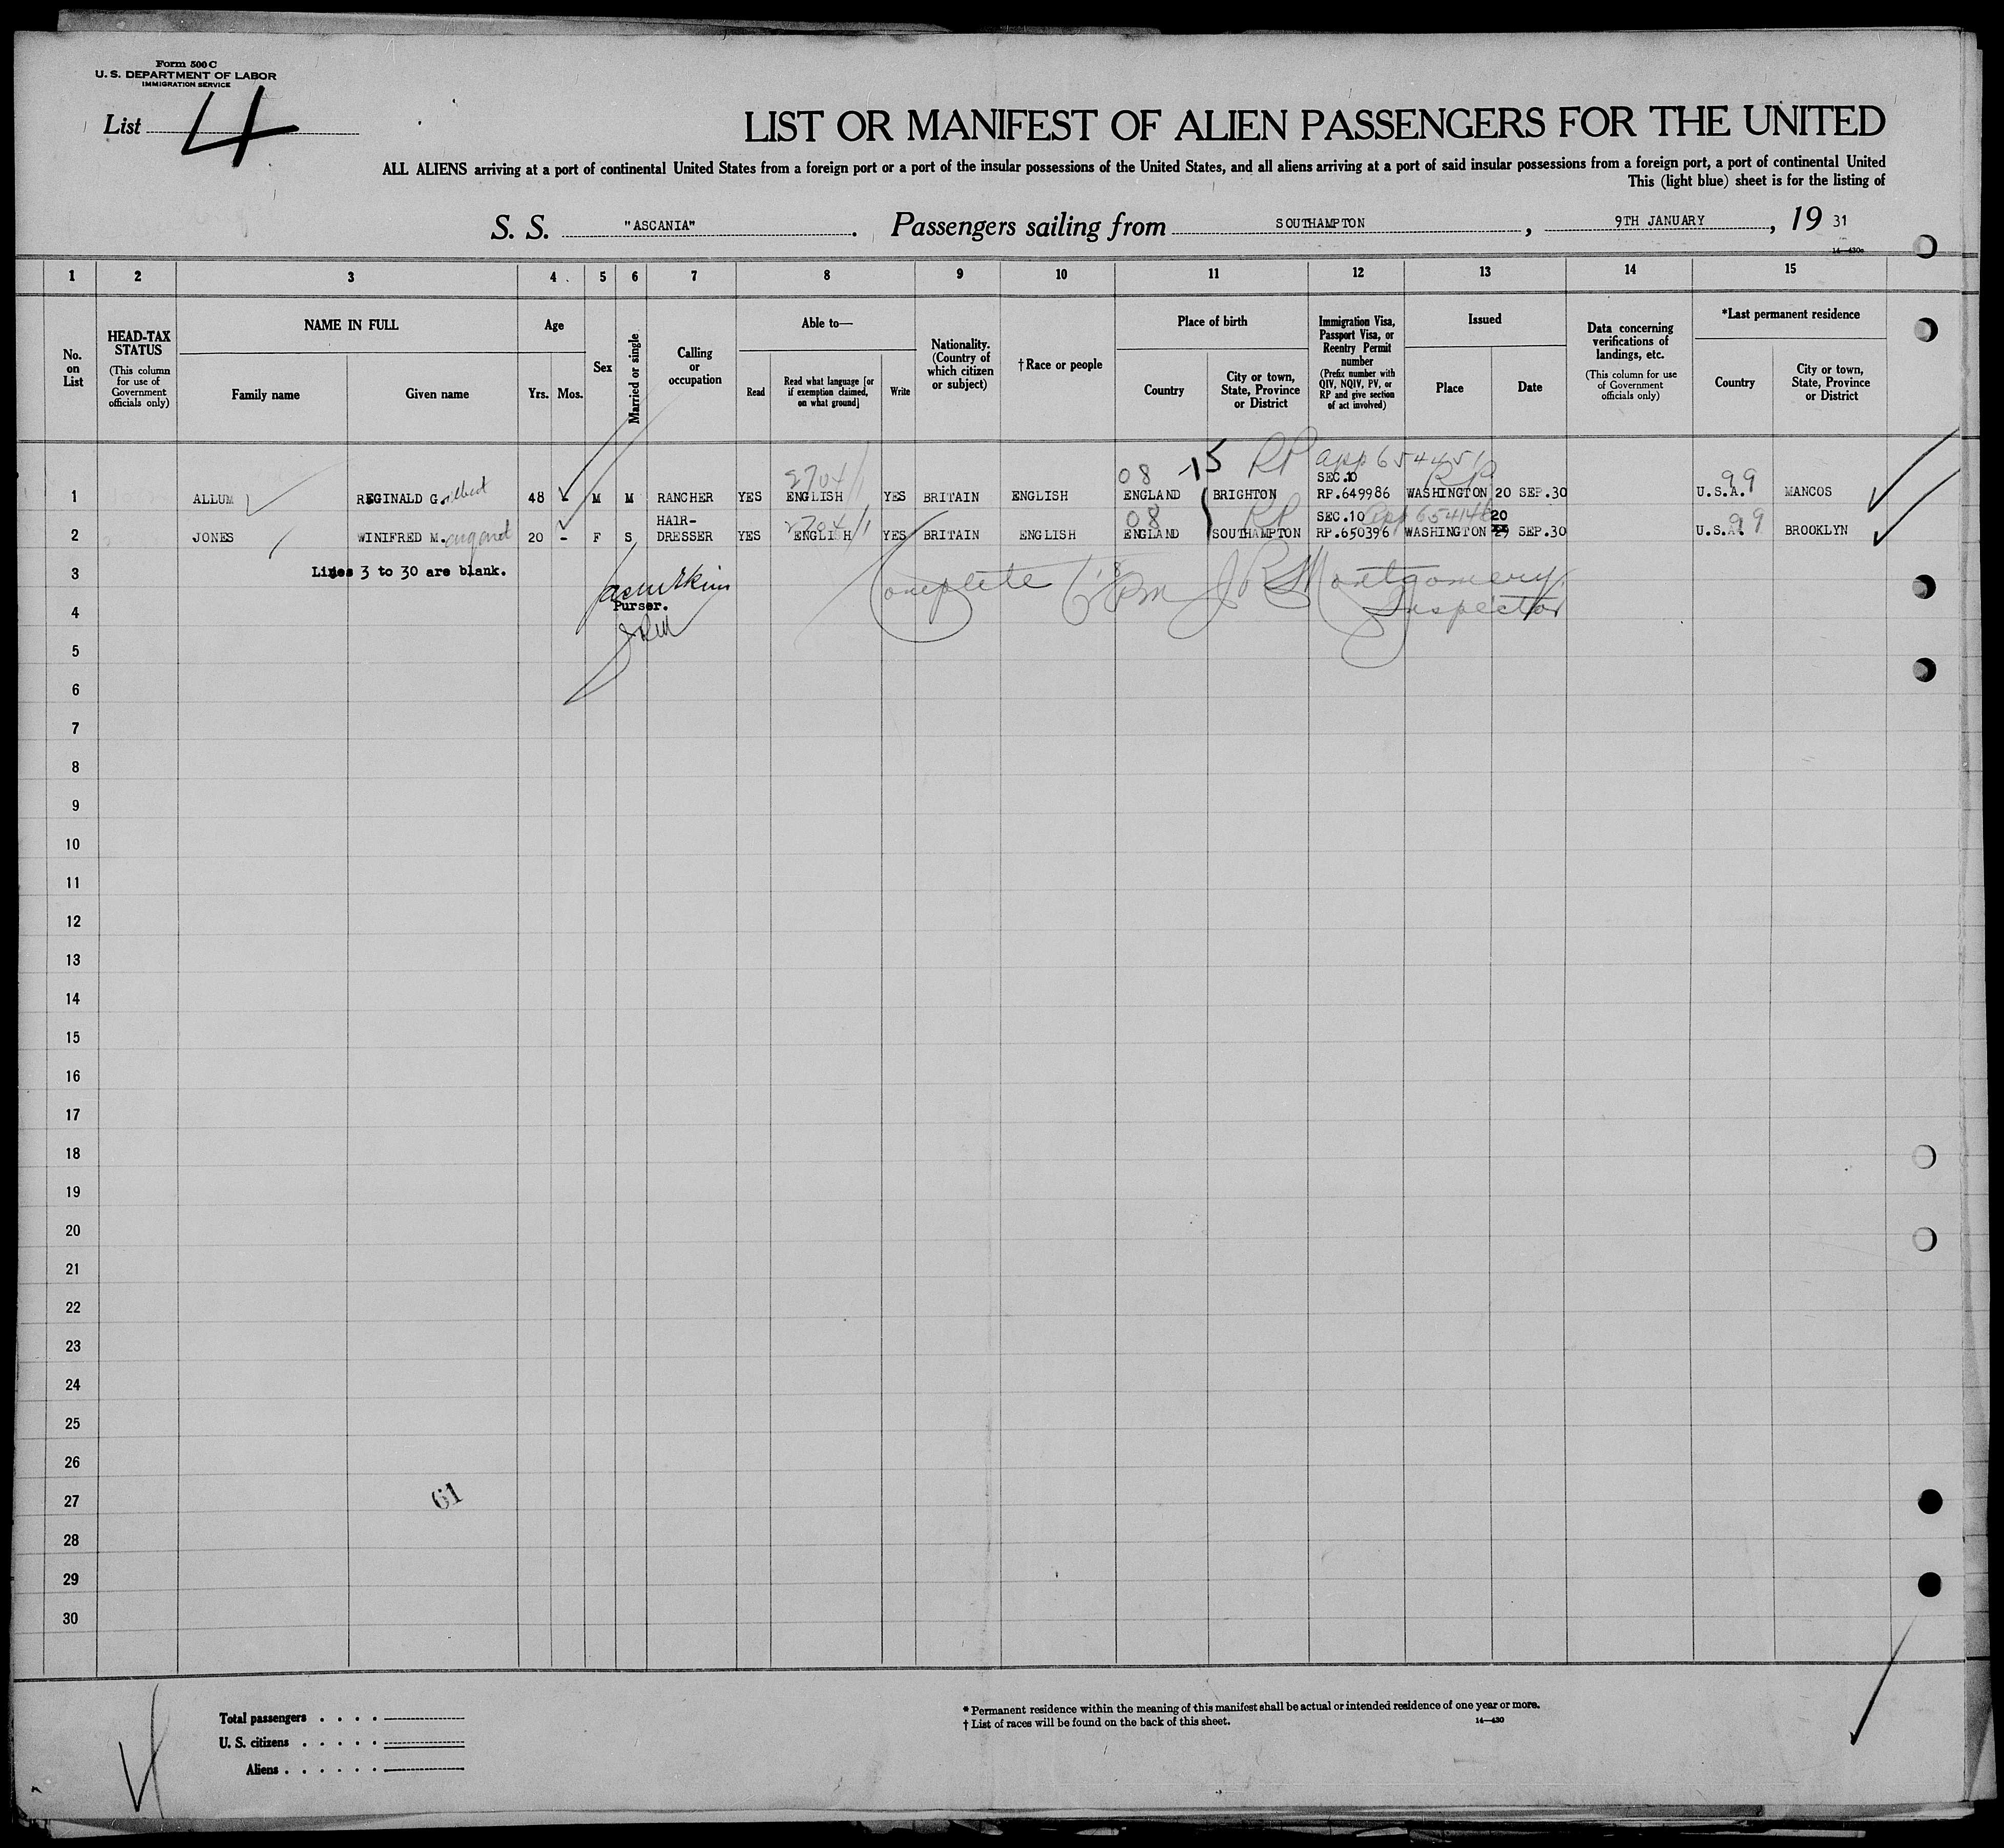 Form 500 C
U. S. DEPARTMENT OF LABOR
IMMIGRATION SERVICE
List 4
LIST OR MANIFEST OF ALIEN PASSENGERS FOR THE UNITED
ALL ALIENS arriving at a port of continental United States from a foreign port or a port of the insular possessions of the United States, and all aliens arriving at a port of said insular possessions from a foreign port, a port of continental United
This (light blue) sheet is for the listing of
S. S. "ASCANIA". Passengers sailing from SOUTHAMPTON, 9TH JANUARY, 19 31
14—430a
1 2 3 4 5 6 7 8 9 10 11 12 13 14 15
No. on List
HEAD-TAX STATUS
(This column for use of Government officials only)
NAME IN FULL
Family name
Given name
Age
Yrs. Mos.
Sex
Married or single
Calling or occupation
Able to—
Read
Read what language [or if exemption claimed, on what ground]
Write
Nationality. (Country of which citizen or subject)
† Race or people
Place of birth
Country
City or town, State, Province or District
Immigration Visa, Passport Visa, or Reentry Permit number
(Prefix number with QIV, NQIV, PV, or RP and give section of act involved)
Issued
Place
Date
Data concerning verifications of landings, etc.
(This column for use of Government officials only)
*Last permanent residence
Country
City or town, State, Province or District
08 15 RP app 654451
2704/1 SEC.10 RP 99
1 ALLUM REGINALD G.ilbert 48 - M M RANCHER YES ENGLISH YES BRITAIN ENGLISH ENGLAND BRIGHTON RP.649986 WASHINGTON 20 SEP.30 U.S.A. MANCOS
HAIR- 2704/1 08 RP SEC.10 app 20 99
2 JONES WINIFRED M. 20 - F S DRESSER YES ENGLISH YES BRITAIN ENGLISH ENGLAND SOUTHAMPTON RP.650396 WASHINGTON 29 SEP.30 U.S.A. BROOKLYN
3 Lines 3 to 30 are blank. Complete Pm J R Montgomery
4 Purser. Inspector
JRM
5
6
7
8
9
10
11
12
13
14
15
16
17
18
19
20
21
22
23
24
25
26
27
61
28
29
30
Total passengers . . . .
U. S. citizens . . . . .
Aliens . . . . . .
* Permanent residence within the meaning of this manifest shall be actual or intended residence of one year or more.
† List of races will be found on the back of this sheet. 14—430